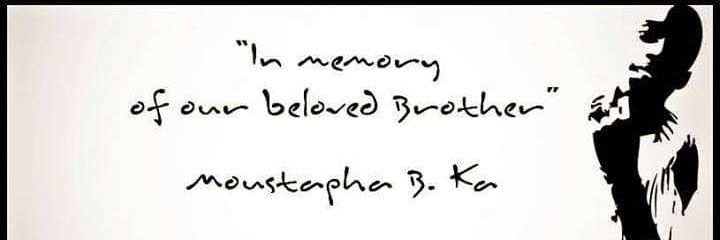 "In memory
of our beloved Brother"
Moustapha B. Ka